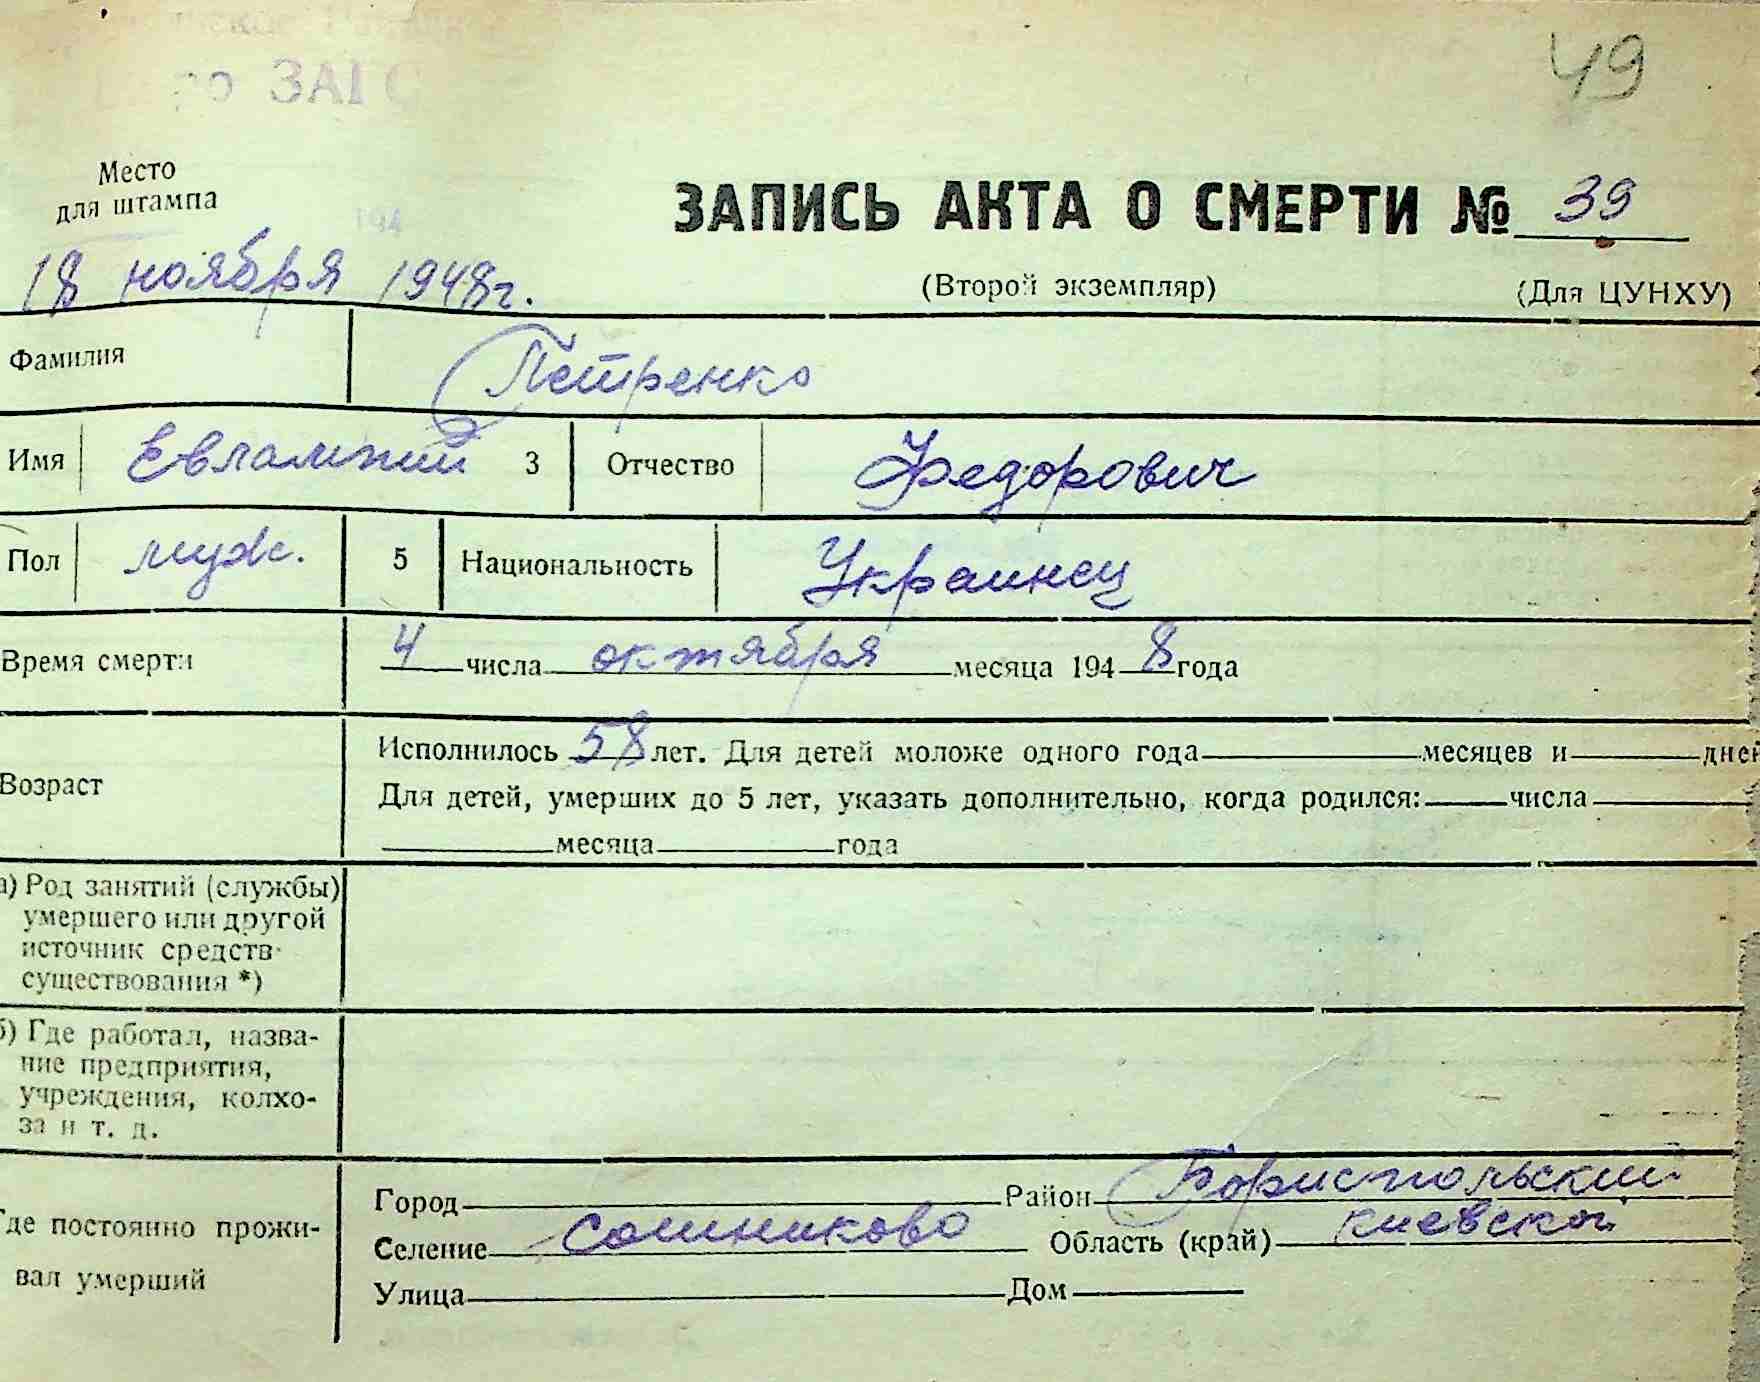 ЗАГС
49
Место
для штампа
194
ЗАПИСЬ АКТА О СМЕРТИ № 39
18 ноября 1948г.
(Второй экземпляр) (Для ЦУНХУ)
Фамилия Петренко
Имя Евлампий 3 Отчество Федорович
Пол муж. 5 Национальность Украинец
Время смерти 4 числа октября месяца 1948 года
Исполнилось 58 лет. Для детей моложе одного года месяцев и дней
Возраст
Для детей, умерших до 5 лет, указать дополнительно, когда родился: числа
месяца года
а) Род занятий (службы)
умершего или другой
источник средств
существования *)
б) Где работал, назва-
ние предприятия,
учреждения, колхо-
за и т. д.
Город Район Бориспольский
Где постоянно прожи-
вал умерший
Селение Сошниково Область (край) Киевской
Улица Дом